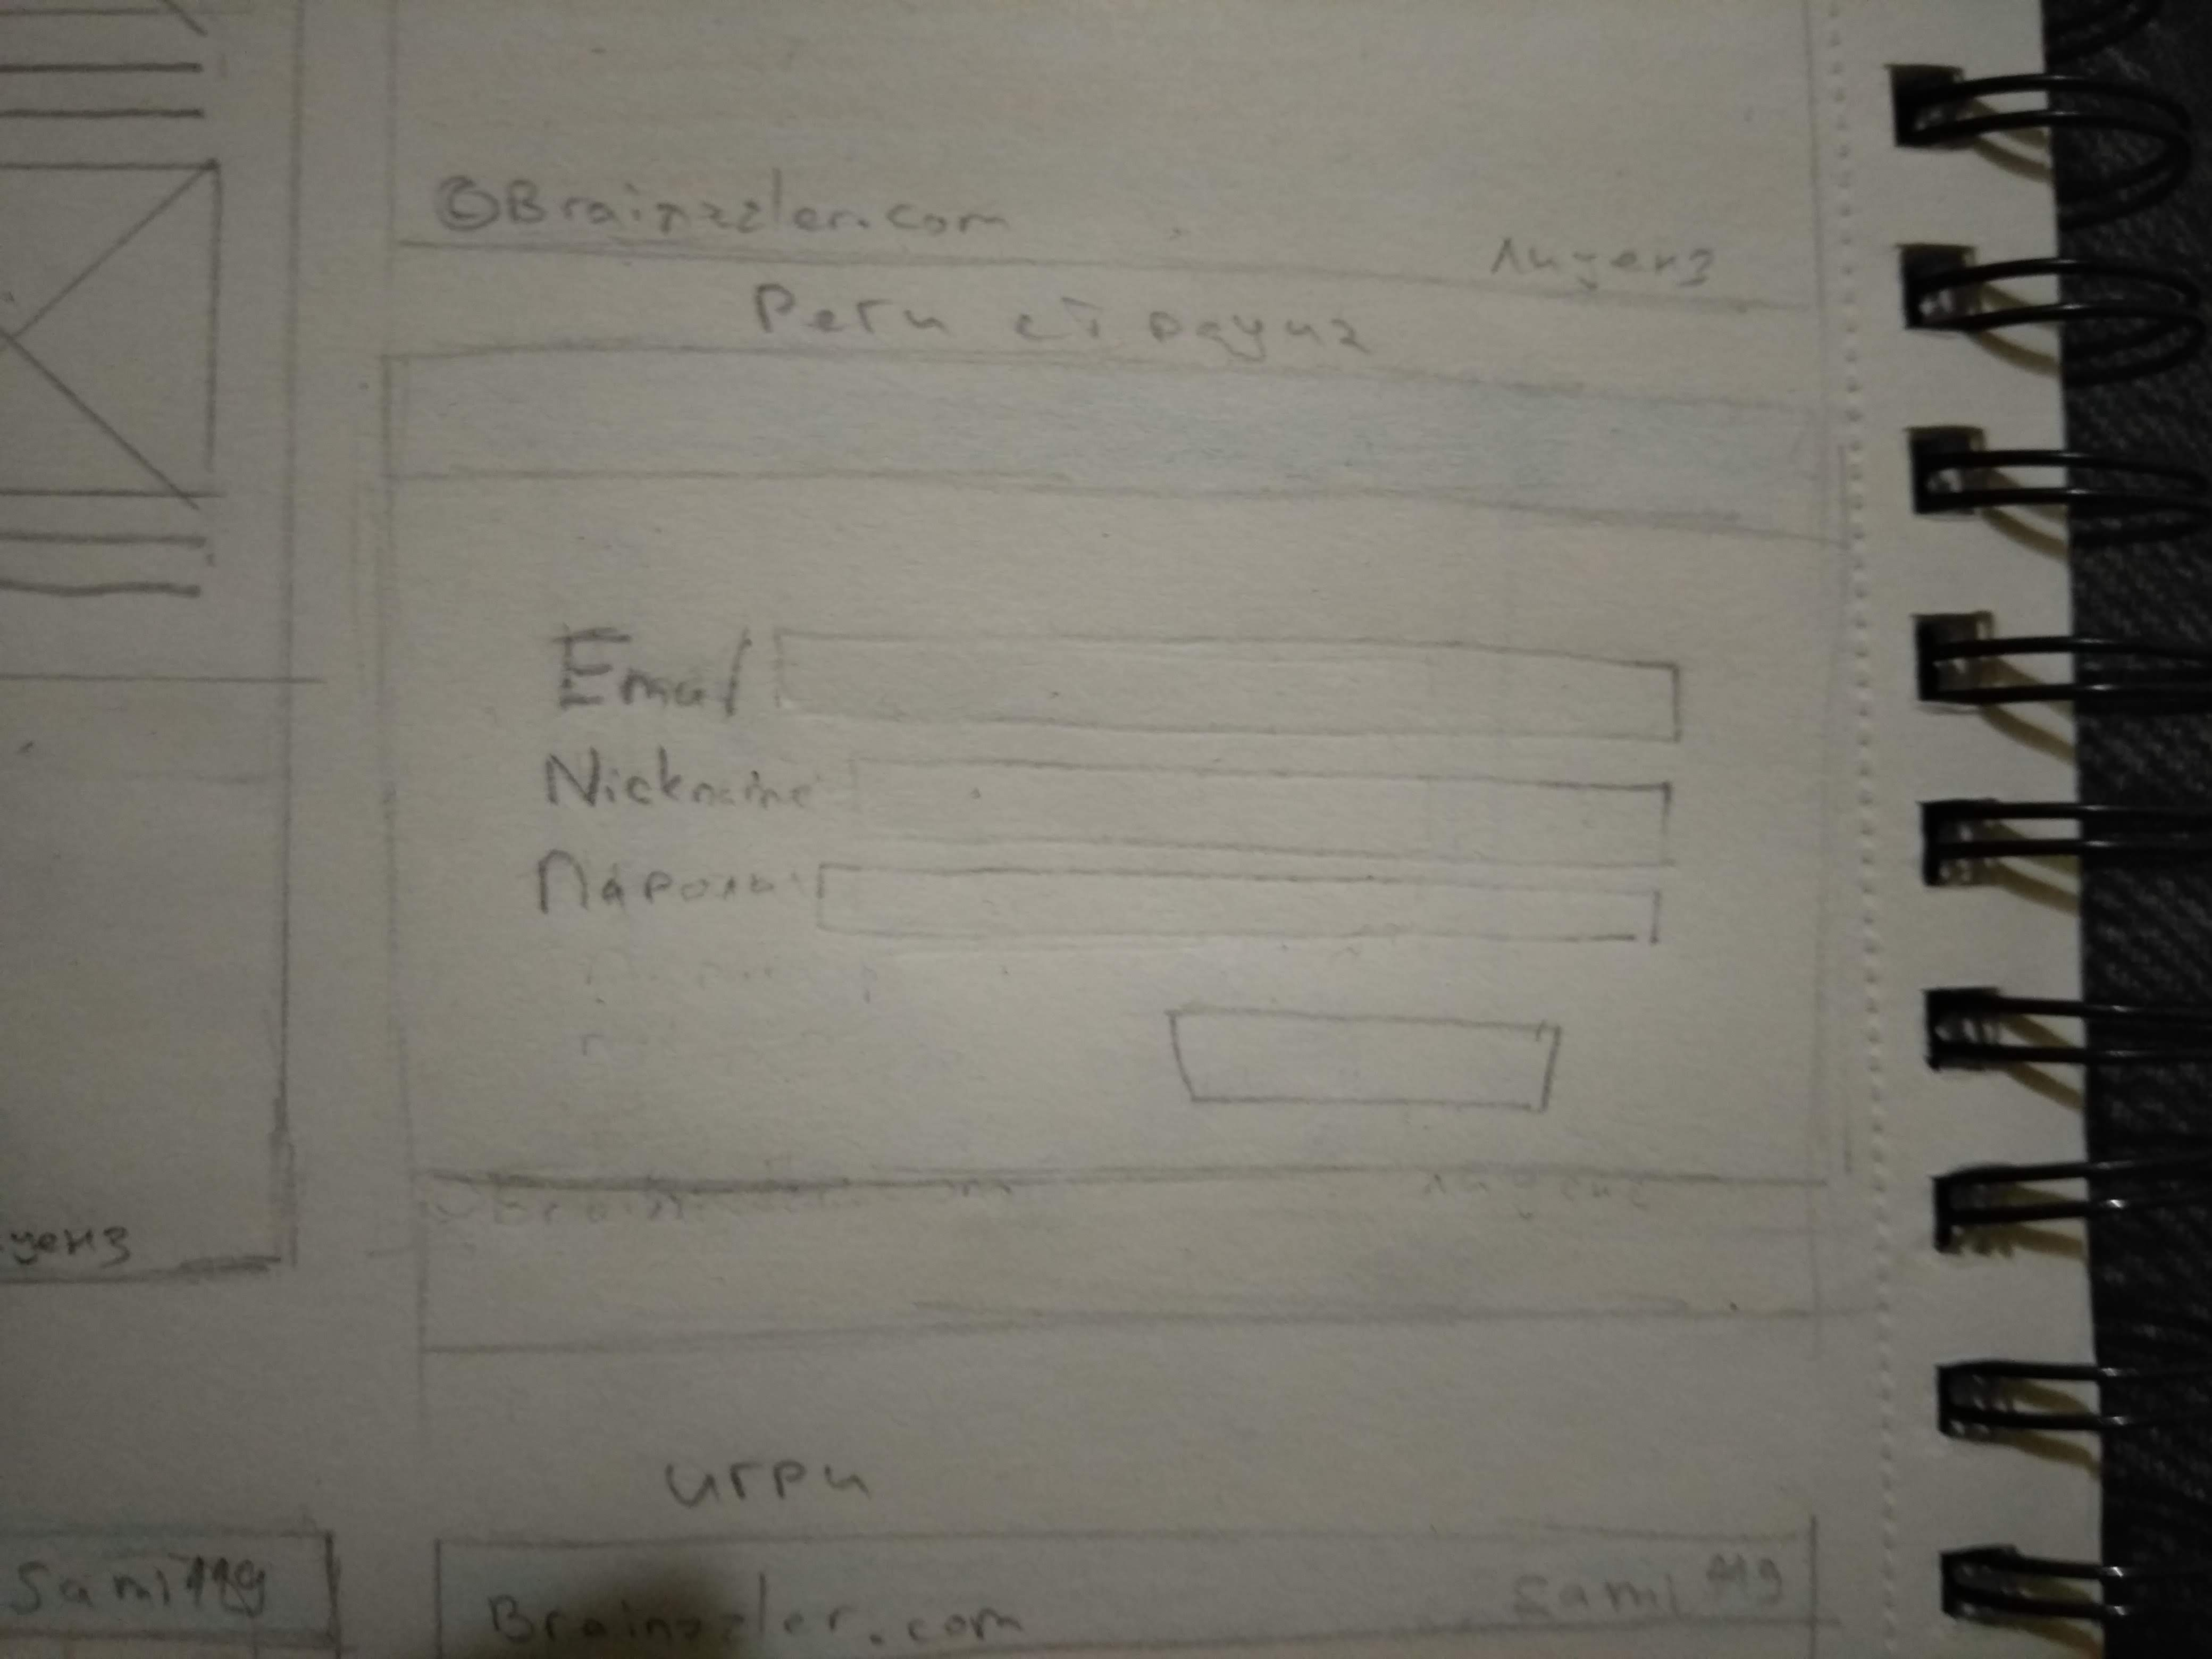 ©Brainzzler.com
Лиценз
Регистрацииз
Email
Nickname
Пароль
ценз
игри
Sami119
Brainzzler.com
Sami119